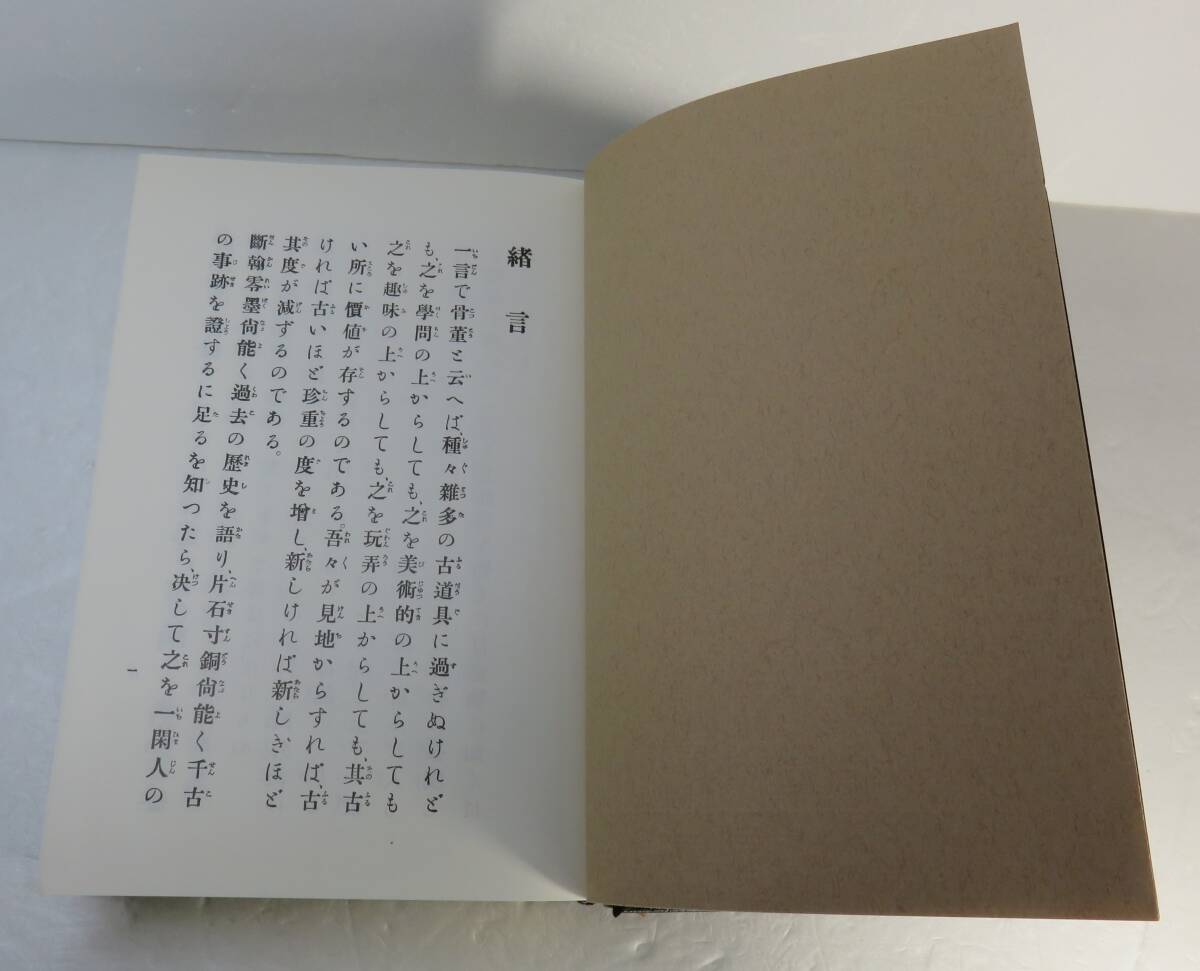 緒言
一言で骨董と云へば、種々雜多の古道具に過ぎぬけれど
も、之を學問の上からしても、之を美術的の上からしても
之を趣味の上からしても、之を玩弄の上からしても、其古
い所に價値が存するのである。吾々が見地からすれば、古
ければ古いほど珍重の度を增し、新しければ新しきほど
其度が減ずるのである。
斷翰零墨尙能く過去の歷史を語り、片石寸銅尙能く千古
の事跡を證するに足るを知つたら、决して之を一閑人の
一